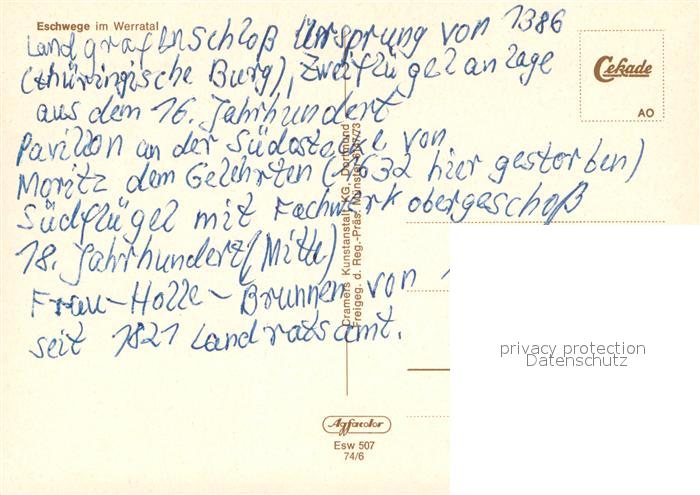 Eschwege im Werratal
Landgrafenschloß Ursprung von 1386
(thüringische Burg), Zweiflügelanlage
aus dem 16. Jahrhundert
Pavillon an der Südostecke von
Moritz dem Gelehrten (1632 hier gestorben)
Südflügel mit Fachwerkobergeschoß
18. Jahrhundert (Mitte)
Frau-Holle-Brunnen von 1
seit 1821 Landratsamt.
Cekade
AO
Cramers Kunstanstalt KG, Dortmund
Freigeg. d. Reg.-Präs. Münster
privacy protection
Datenschutz
Agfacolor
Esw 507
74/6